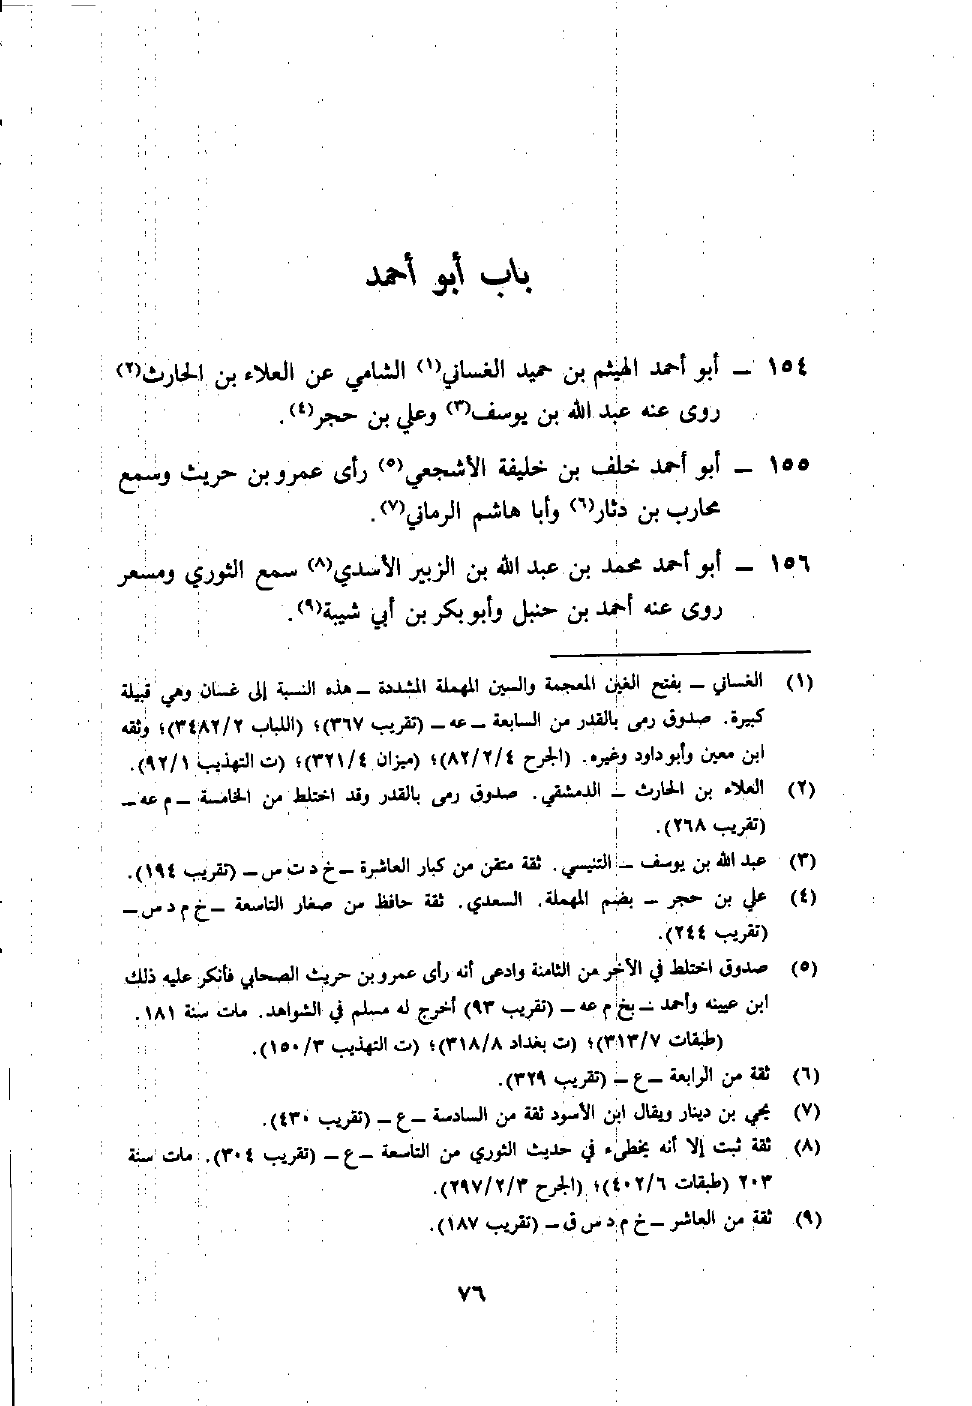 باب أبو أحمد
١٥٤ – أبو أحمد الهيثم بن حميد الغساني(١) الشامي عن العلاء بن الحارث(٢)
روى عنه عبد الله بن يوسف(٣) وعلي بن حجر(٤).
١٥٥ – أبو أحمد خلف بن خليفة الأشجعي(٥) رأى عمرو بن حريث وسمع
محارب بن دثار(٦) وأبا هاشم الرماني(٧).
١٥٦ – أبو أحمد محمد بن عبد الله بن الزبير الأسدي(٨) سمع الثوري ومسعر
روى عنه أحمد بن حنبل وأبو بكر بن أبي شيبة(٩).
(١) الغساني – بفتح الغين المعجمة والسين المهملة المشددة – هذه النسبة إلى غسان وهي قبيلة
كبيرة. صدوق رمى بالقدر من السابعة – عه – (تقريب ٣٦٧)؛ (اللباب ٣٤٨٢/٢)؛ وثقه
ابن معين وأبو داود وغيره. (الجرح ٨٢/٢/٤)؛ (ميزان ٣٢١/٤)؛ (ت التهذيب ٩٢/١).
(٢) العلاء بن الحارث – الدمشقي. صدوق رمى بالقدر وقد اختلط من الخامسة – م عه –
(تقريب ٢٦٨).
(٣) عبد الله بن يوسف – التنيسي. ثقة متقن من كبار العاشرة – خ د ت س – (تقريب ١٩٤).
(٤) علي بن حجر – بضم المهملة. السعدي. ثقة حافظ من صغار التاسعة – خ م د س –
(تقريب ٢٤٤).
(٥) صدوق اختلط في الآخر من الثامنة وادعى أنه رأى عمرو بن حريث الصحابي فأنكر عليه ذلك
ابن عيينه وأحمد – بخ م عه – (تقريب ٩٣) أخرج له مسلم في الشواهد. مات سنة ١٨١.
(طبقات ٣١٣/٧)؛ (ت بغداد ٣١٨/٨)؛ (ت التهذيب ١٥٠/٣).
(٦) ثقة من الرابعة – ع – (تقريب ٣٢٩).
(٧) يحي بن دينار ويقال ابن الأسود ثقة من السادسة – ع – (تقريب ٤٣٠).
(٨) ثقة ثبت إلا أنه يخطىء في حديث الثوري من التاسعة – ع – (تقريب ٣٠٤). مات سنة
٢٠٣ (طبقات ٤٠٢/٦)؛ (الجرح ٢٩٧/٢/٣).
(٩) ثقة من العاشر – خ م د س ق – (تقريب ١٨٧).
٧٦